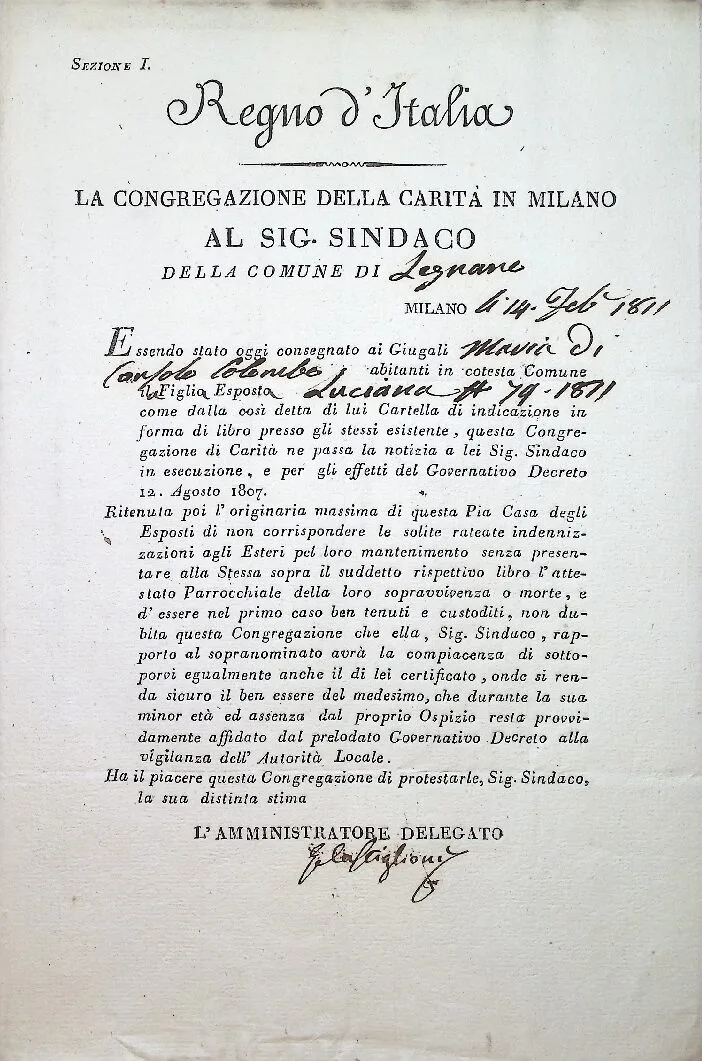 SEZIONE I.
Regno d'Italia
LA CONGREGAZIONE DELLA CARITÀ IN MILANO
AL SIG. SINDACO
DELLA COMUNE DI Legnano
MILANO li 14. Feb. 1811
Essendo stato oggi consegnato ai Giugali Maria Di
Colombo abitanti in cotesta Comune
la Figlia Esposta Luciana 79-1811
come dalla così detta di lui Cartella di indicazione in
forma di libro presso gli stessi esistente, questa Congre-
gazione di Carità ne passa la notizia a lei Sig. Sindaco
in esecuzione, e per gli effetti del Governativo Decreto
12. Agosto 1807.
Ritenuta poi l'originaria massima di questa Pia Casa degli
Esposti di non corrispondere le solite rateate indenniz-
zazioni agli Esteri pel loro mantenimento senza presen-
tare alla Stessa sopra il suddetto rispettivo libro l'atte-
stato Parrocchiale della loro sopravvivenza o morte, e
d'essere nel primo caso ben tenuti e custoditi, non du-
bita questa Congregazione che ella, Sig. Sindaco, rap-
porto al sopranominato avrà la compiacenza di sotto-
porvi egualmente anche il di lei certificato, onde si ren-
da sicuro il ben essere del medesimo, che durante la sua
minor età ed assenza dal proprio Ospizio resta provvi-
damente affidato dal prelodato Governativo Decreto alla
vigilanza dell'Autorità Locale.
Ha il piacere questa Congregazione di protestarle, Sig. Sindaco,
la sua distinta stima
L'AMMINISTRATORE DELEGATO